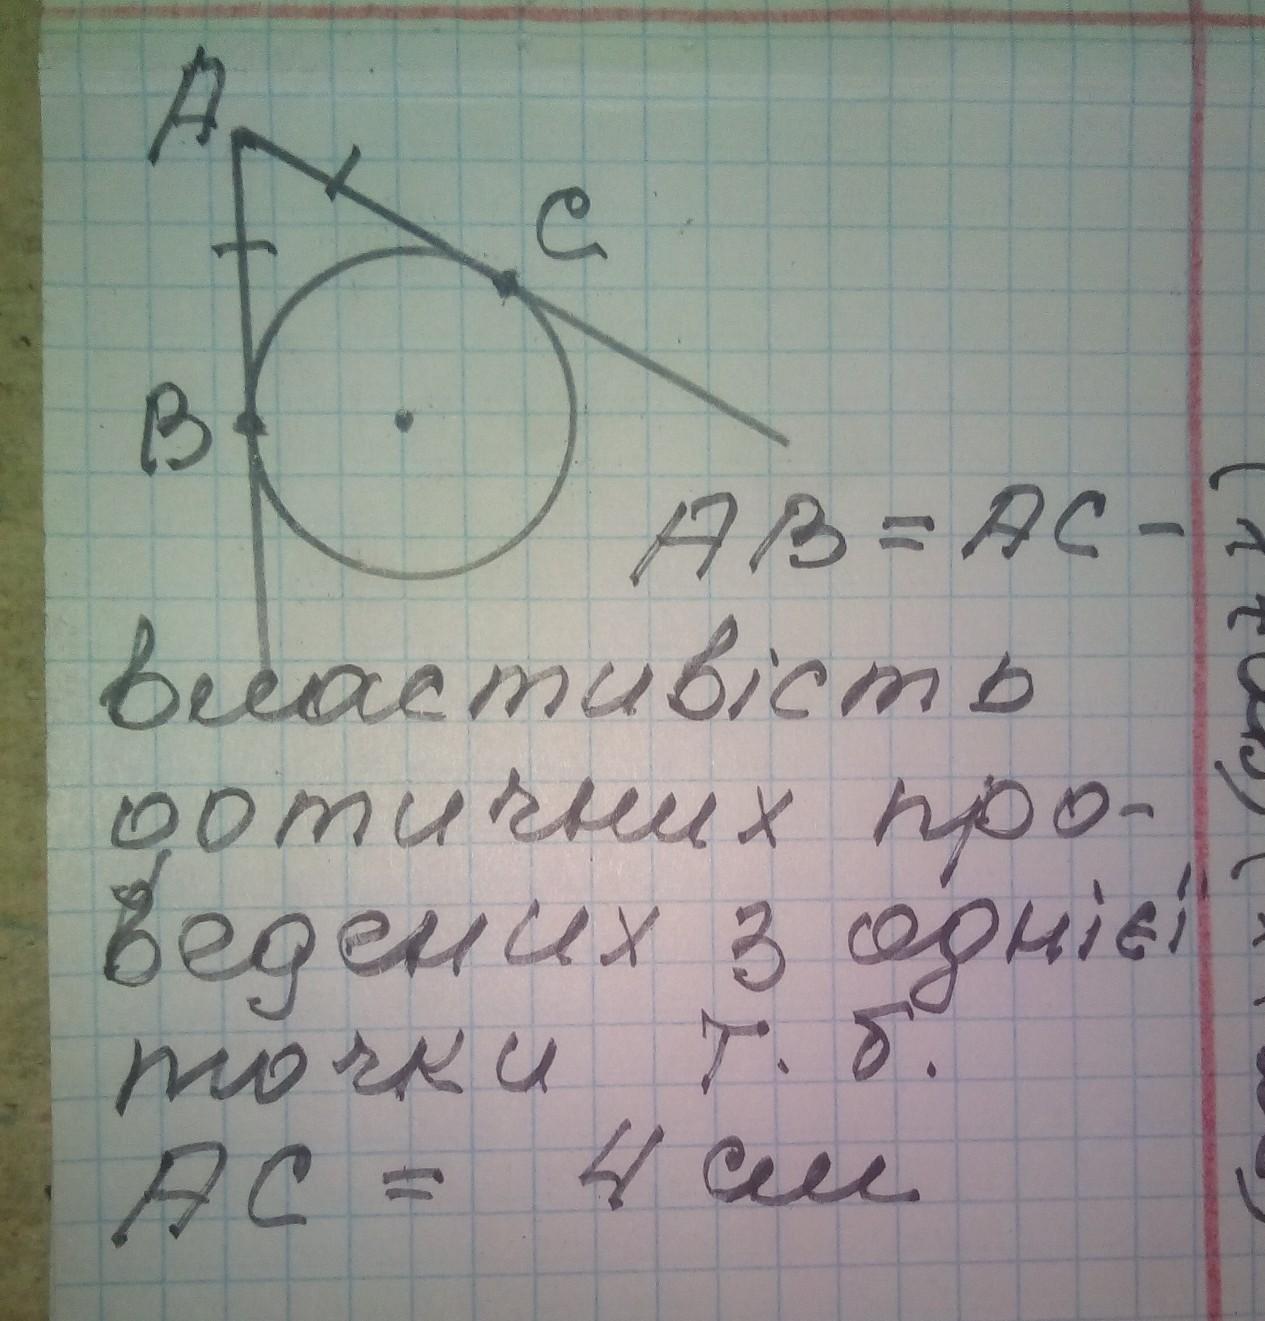 A
C
B
AB = AC -
властивість
дотичних про-
ведених з однієї
точки т. б.
AC = 4 см